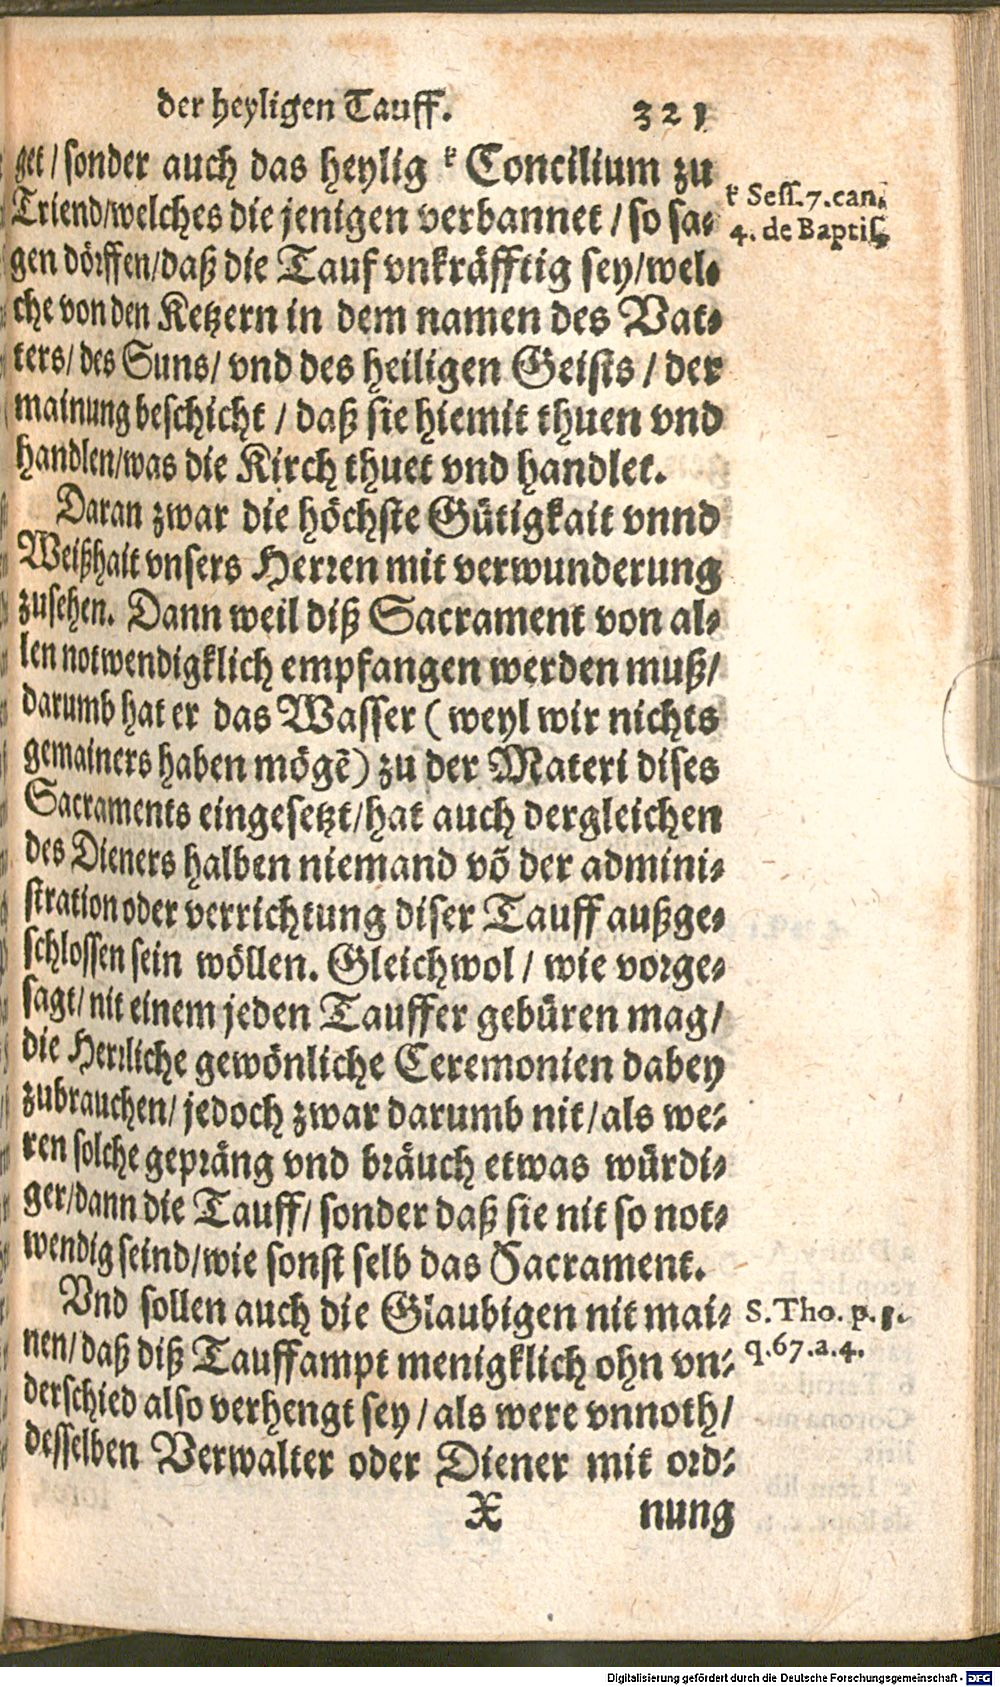 der heyligen Tauff. 321
get / sonder auch das heylig k Concilium zu
Triend/welches die jenigen verbannet / so sa⸗
gen dörffen/daß die Tauf vnkräfftig sey/wel⸗
che von den Ketzern in dem namen des Vat⸗
ters/ des Suns/ vnd des heiligen Geists / der
mainung beschicht / daß sie hiemit thuen vnd
handlen/was die Kirch thuet vnd handlet.
k Sess.7.can.
4. de Baptis.
Daran zwar die höchste Gütigkait vnnd
Weißhait vnsers Herren mit verwunderung
zusehen. Dann weil diß Sacrament von al⸗
len notwendigklich empfangen werden muß/
darumb hat er das Wasser ( weyl wir nichts
gemainers haben mögẽ) zu der Materi dises
Sacraments eingesetzt/hat auch dergleichen
des Dieners halben niemand võ der admini⸗
stration oder verrichtung diser Tauff außge⸗
schlossen sein wöllen. Gleichwol / wie vorge⸗
sagt/ nit einem jeden Tauffer gebüren mag/
die Herrliche gewönliche Ceremonien dabey
zubrauchen/ jedoch zwar darumb nit/als we⸗
ren solche gepräng vnd bräuch etwas würdi⸗
ger/dann die Tauff/ sonder daß sie nit so not⸗
wendig seind/wie sonst selb das Sacrament.
Vnd sollen auch die Glaubigen nit mai⸗
nen/ daß diß Tauffampt menigklich ohn vn⸗
derschied also verhengt sey / als were vnnoth/
desselben Verwalter oder Diener mit ord⸗
S. Tho. p. 3.
q.67.a.4.
X nung
Digitalisierung gefördert durch die Deutsche Forschungsgemeinschaft - DFG